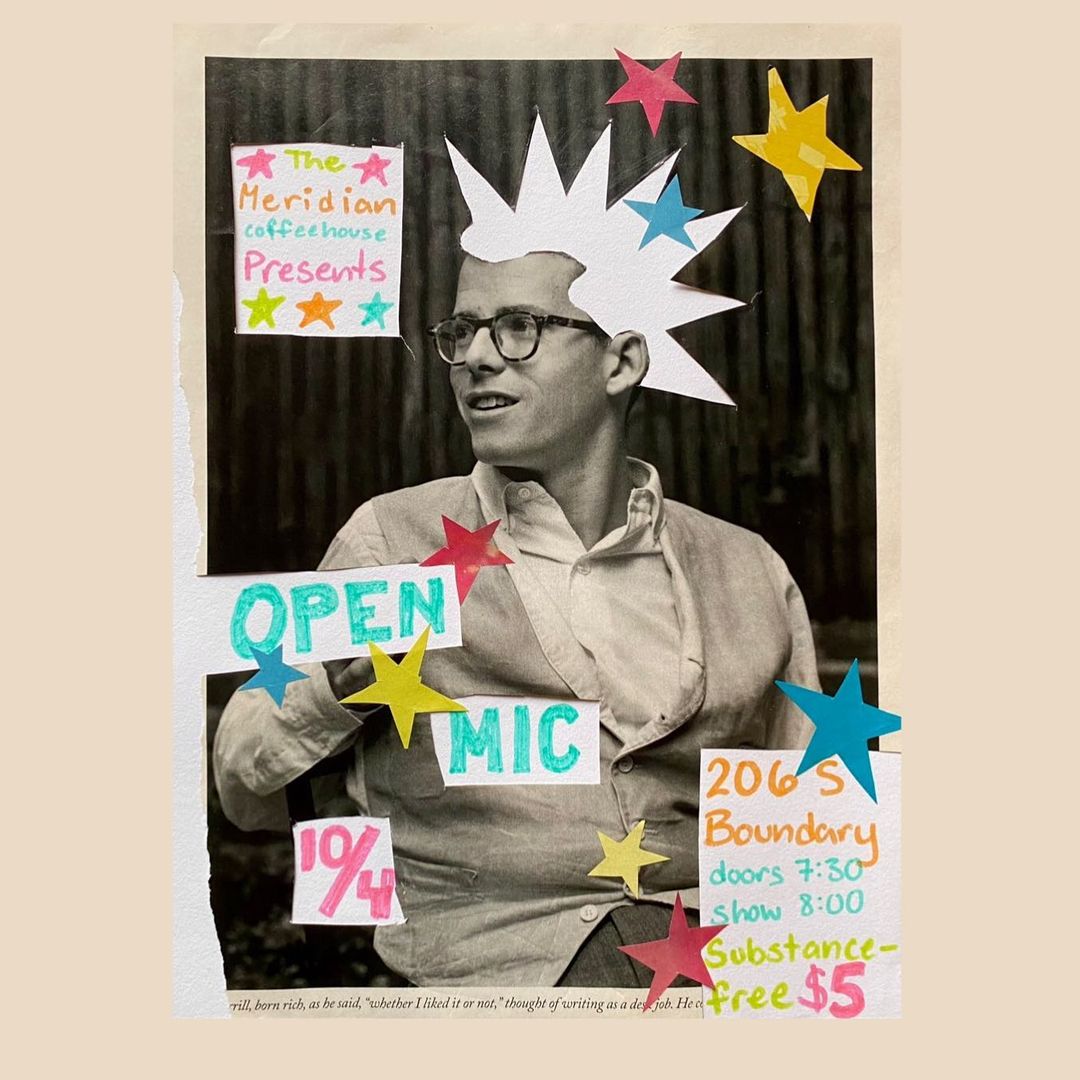 The
Meridian
coffeehouse
Presents
OPEN
MIC
10/4
206 S
Boundary
doors 7:30
show 8:00
Substance-
free $5
rill, born rich, as he said, “whether I liked it or not,” thought of writing as a desk job. He